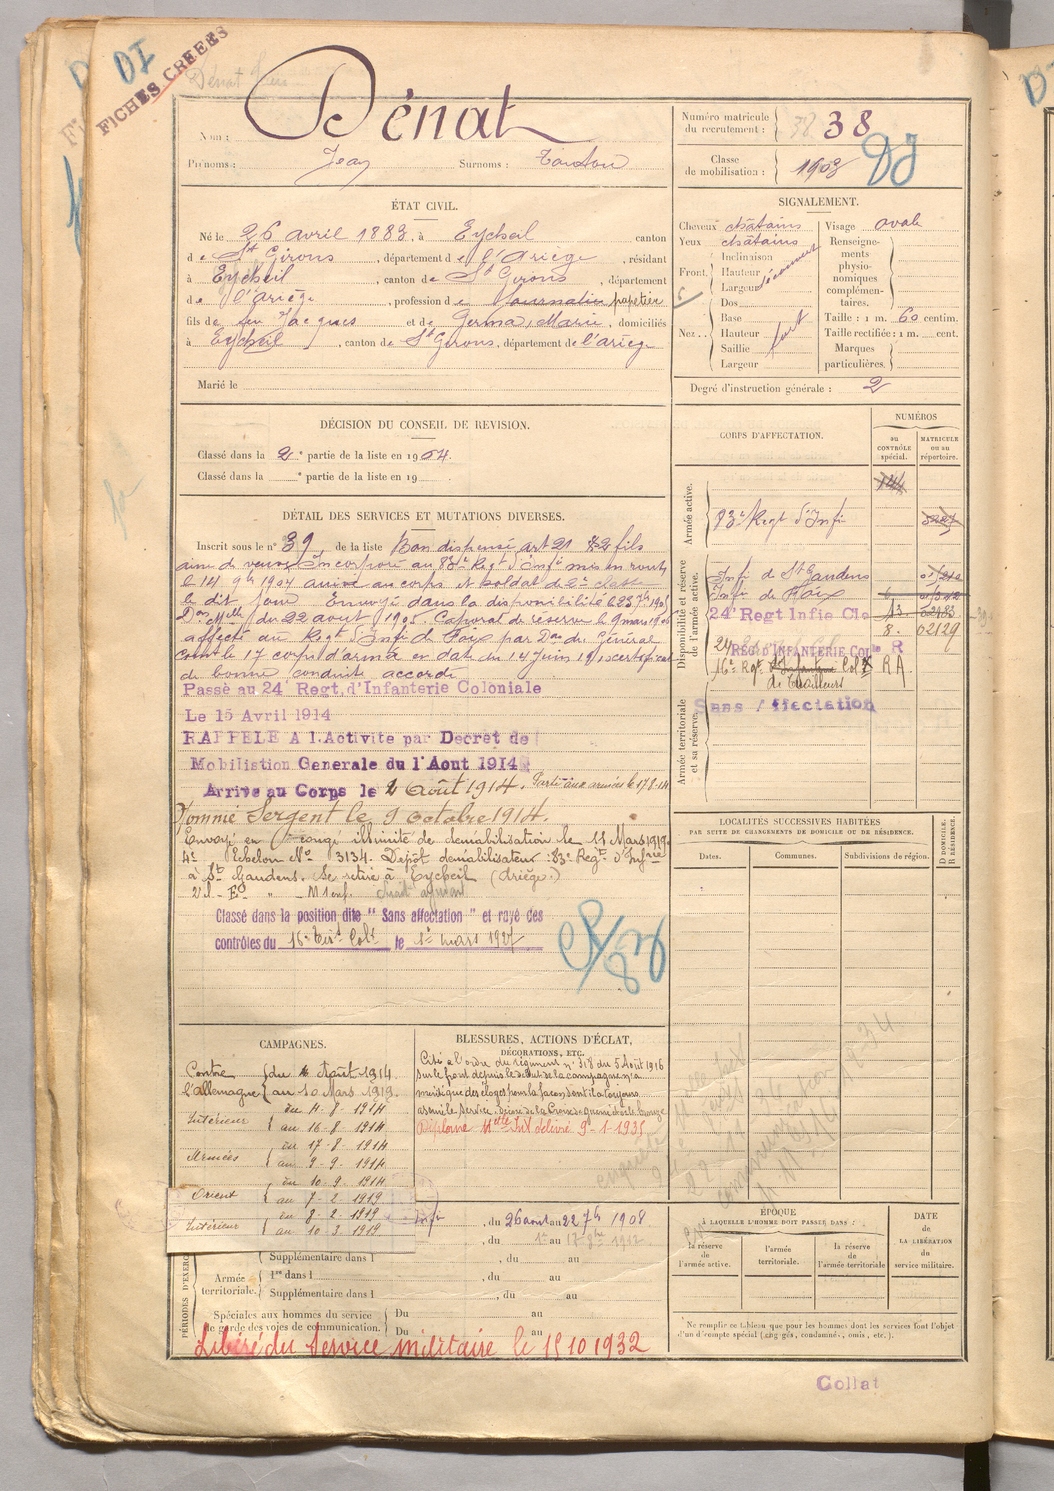 DI
FICHES CRÉÉES
Dénat
Nom :
Prénoms : Jean Surnoms : Toulou
Numéro matricule du recrutement : 38
Classe de mobilisation : 1903
ÉTAT CIVIL.
Né le 26 avril 1883, à Eycheil canton
de St Girons, département de l'Ariège, résidant
à Eycheil, canton de St Girons, département
de l'Ariège, profession de Journalier papetier
fils de feu Jacques et de Germa, Marie, domiciliés
à Eycheil, canton de St Girons, département de l'ariège
Marié le
SIGNALEMENT.
Cheveux châtains Visage ovale
Yeux châtains
Front Inclinaison Hauteur Largeur découvert
Nez Dos Base Hauteur Saillie Largeur fort
Renseignements physionomiques complémentaires.
Taille : 1 m. 60 centim.
Taille rectifiée : 1 m. cent.
Marques particulières.
Degré d'instruction générale : 2
DÉCISION DU CONSEIL DE REVISION.
Classé dans la 2e partie de la liste en 1904.
Classé dans la e partie de la liste en 19
DÉTAIL DES SERVICES ET MUTATIONS DIVERSES.
Inscrit sous le n° 39 de la liste Bon dispensé art 21 fils
ainé de veuve Incorporé au 83e Regt d'Infie mis en route
le 14 9bre 1904 arrivé au corps et soldat de 2e classe
le dit jour Envoyé dans la disponibilité le 23 7bre 1905
Don Mlle du 22 aout 1905. Caporal de réserve le 9 mars 1906
affecté au Regt d'Infie de Foix par Don du Général
comt le 17 corps d'armée en date du 14 juin certificat
de bonne conduite accordé
Passé au 24e Regt, d'Infanterie Coloniale
Le 15 Avril 1914
RAPPELE A l'Activite par Decret de
Mobilistion Generale du 1'Aout 1914
Arrive au Corps le 2 Août 1914. Parti aux armées le 17 8 14
Nommé Sergent le 9 octobre 1914.
Envoyé en congé illimité de démobilisation le 11 Mars 1919.
4e Echelon No 3134. Dépôt démobilisateur : 83e Regt d'Infrie
à St Gaudens. Se retire à Eycheil (Ariège.)
Classé dans la position dite " Sans affectation " et rayé des
contrôles du 16e Tirs Colx le 1er mars 1927
CORPS D'AFFECTATION.
NUMÉROS
au CONTRÔLE spécial.
MATRICULE ou au répertoire.
Armée active.
83e Regt d'Infie
Disponibilité et réserve de l'armée active.
Infie de St Gaudens
Infie de Foix
24e Regt Infie Cle 13
8. 02129
24 REGt D'INFANTERIE Cole R
16e Regt d'Infanterie Colx RA
de Tirailleurs
Armée territoriale et sa réserve.
Sans Affectation
LOCALITÉS SUCCESSIVES HABITÉES
PAR SUITE DE CHANGEMENTS DE DOMICILE OU DE RÉSIDENCE.
Dates. Communes. Subdivisions de région.
D DOMICILE. R RÉSIDENCE.
CAMPAGNES.
Contre l'allemagne du Août 1914 au 10 Mars 1919
Intérieur du 4-8-1914
au 16-8-1914
Armées du 17-8-1914
au 9-9-1914
Orient du 10-9-1914
au 7-2-1919
Intérieur du 8-2-1919
au 10-3-1919
BLESSURES, ACTIONS D'ÉCLAT,
DÉCORATIONS, ETC.
Cité à l'ordre du régiment n° 318 du 5 Août 1916
Sur le front depuis le début de la campagne n'a
mérité que des éloges pour la façon dont il a toujours
assuré le service. Décoré de la Croix de guerre étoile bronze
Diplôme délivré 9-1-1935
Infie, du 26 aout au 22 7bre 1908
, du 1er au 17 8bre 1912
Supplémentaire dans l , du au
Armée territoriale.
1re dans l , du au
Supplémentaire dans l , du au
Spéciales aux hommes du service
de garde des voies de communication.
Du au
Du au
PÉRIODES D'EXERC
ÉPOQUE
À LAQUELLE L'HOMME DOIT PASSER DANS :
la réserve de l'armée active.
l'armée territoriale.
la réserve de l'armée territoriale
DATE de LA LIBÉRATION du service militaire.
Ne remplir ce tableau que pour les hommes dont les services font l'objet
d'un décompte spécial (engagés, condamnés, omis, etc.).
Libéré du Service militaire le 15 10 1932
Collat